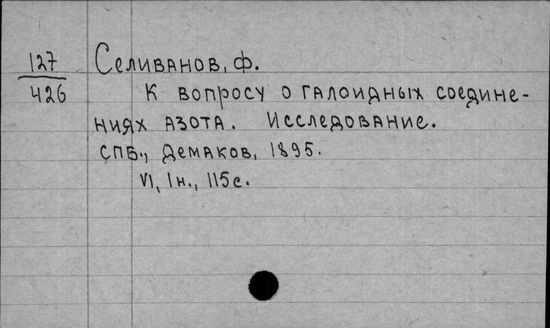 127
426
Селиванов, Ф.
К вопросу о галоидных соедине-
ниях азота. Исследование.
СПБ., Демаков, 1895.
VI, 1н., 115с.